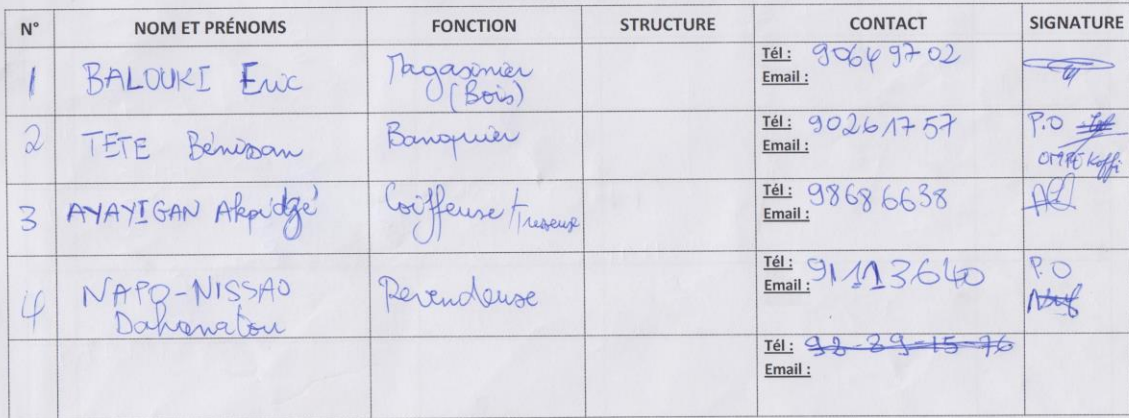 N° NOM ET PRÉNOMS FONCTION STRUCTURE CONTACT SIGNATURE
1 BALOUKI Eric Magasinier (Bois) Tél : 90649702
Email :
2 TETE Bénissan Banquier Tél : 90261757 P.O
Email : Koffi
3 AYAYIGAN Akpédzé Coiffeuse / Tresseuse Tél : 98686638
Email :
4 NAPO-NISSAO Revendeuse Tél : 91113640 P.O
Dahanatou Email :
Tél : 92-89-15-76
Email :